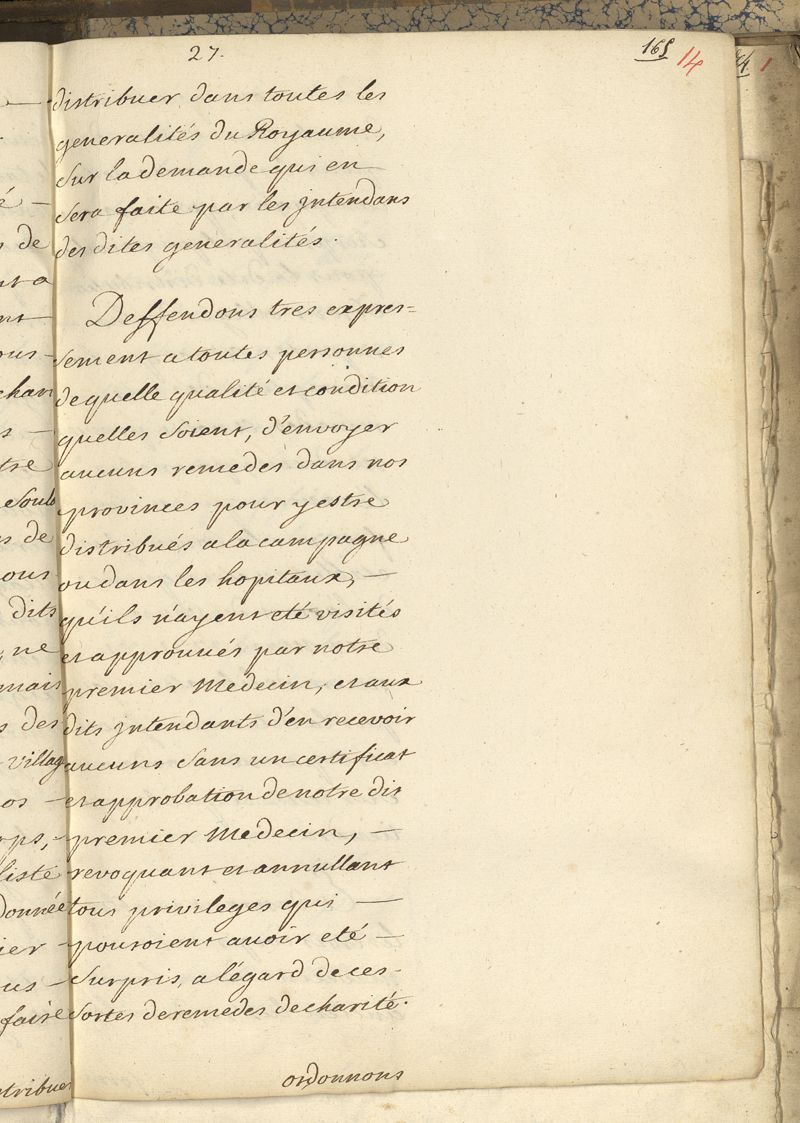 27.
165
14
1
distribuer dans toutes les
generalités du Royaume,
sur la demande qui en
sera faite par les jntendans
des dites generalités.
Deffendons tres expres=
sement a toutes personnes
de quelle qualité et condition
quelles soient, d'envoyer
aucuns remedes dans nos
provinces pour y estre
distribués a la campagne
ou dans les hopitaux, —
qu'ils n'ayent eté visités
et approuués par notre
premier Medecin, et aux
dits jntendants d'en recevoir
aucuns sans un certificat
et approbation de notre dit
premier Medecin, —
revoquant et annullant
tous privileges qui —
pouroient auoir eté —
surpris, a légard de ces-
sortes de remedes de charité.
ordonnons
é —
de
nt a
nt
ous -
chan
s —
tre
e soul
s de
ous
dits
, ne
mais
s des
villag
os —
ps, -
liste
donnée
ier -
us -
faire
tribuer